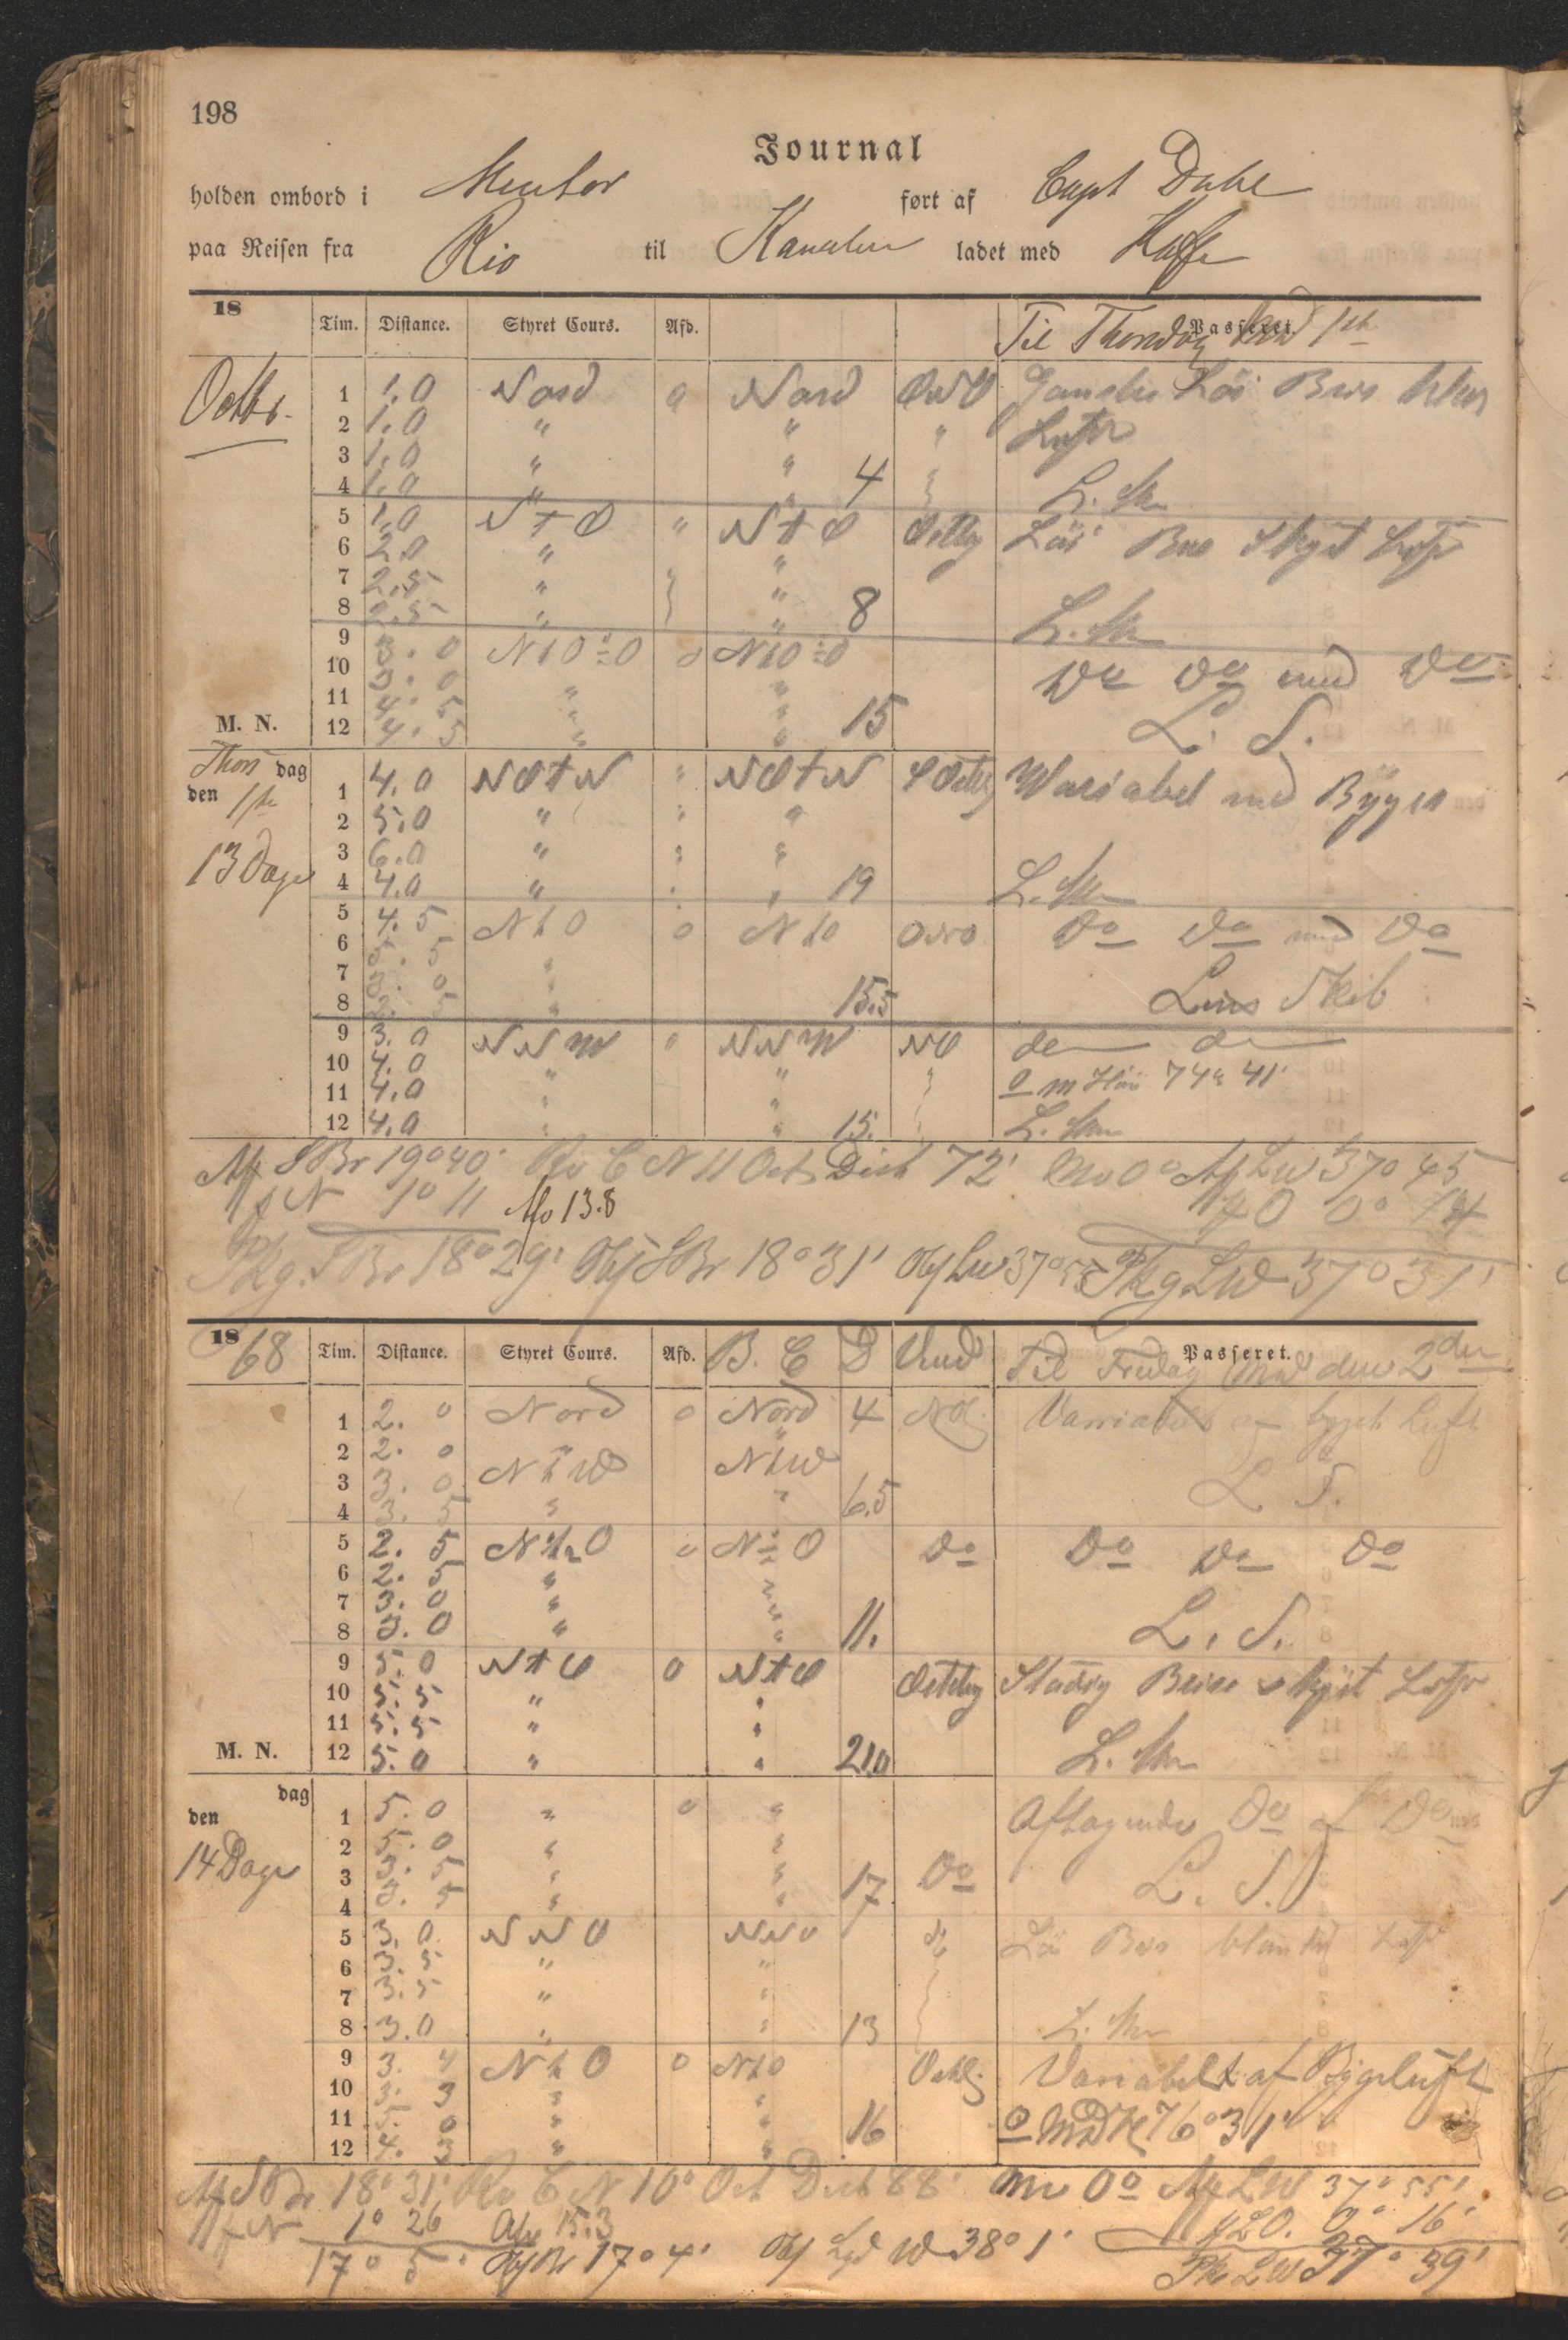 198
Journal
holden ombord i Mentor ført af Capt Dahl
paa Reisen fra Rio til Kanalen ladet med Kaffe
18 Tim. Distance. Styret Cours. Afd. Passeret.
Til Thorsdag Md 1ste
Octbr.
1 1.0 Nord 0 Nord ONO Ganske Löi Bris
2 1.0 " " " Luft
3 1.0 " "
4 1.0 " " 4 L. Sk
5 1.0 N t O " N t O Östlig Löi Bris Skyet Luft
6 2.0 " "
7 2.5 " "
8 2.5 " " 8 L. Sk
9 3.0 N t O ½ O 0 N t O ½ O
10 3.0 " " Do Do med Do
11 4.5 " "
M. N. 12 4.5 " " 15 L. S.
Thors dag
den 1ste
13 Dage
1 4.0 NO t N " NO t N Östlig Wariabel med Byger
2 5.0 " " "
3 6.0 " " "
4 4.0 " " " 19 L. Sk
5 4.5 N t O 0 N t O ONO Do Do med Do
6 5.5 "
7 3.0 "
8 2.5 " 15.5 Lens Skib
9 3.0 NNW 0 NNW NO do do
10 4.0 " " m Höi 74° 41'
11 4.0 " "
12 4.0 " " 15. L. Sk
Af SBr 19° 40' Rv C N 11 Ost Dist 72' Mv 0° Af LW 37° 45
f N 1° 11 Afv 13.8 f O 0° 14
Pkg. SBr 18° 29' Obs SBr 18° 31' Obs LW 37° 55' Pkg LW 37° 31'
1868 Tim. Distance. Styret Cours. Afd. B. C D Vind Passeret.
Til Fredag Md den 2den
1 2.0 Nord 0 Nord 4 NO. Variabel byget Luft
2 2.0 " "
3 3.0 N t W N t W
4 3.5 " " 6.5 L S.
5 2.5 N ½ O 0 N ½ O Do Do Do Do
6 2.5 " "
7 3.0 " "
8 3.0 " " 11. L. S.
9 5.0 N t O 0 N t O Östlig Stadig Bris skyet Luft
10 5.5 " "
11 5.5 " "
M. N. 12 5.0 " " 21.0 L. Sk
dag
den
14 Dage
1 5.0 " 0 " Aftagende Do af Do
2 5.0 " "
3 3.5 " " Do
4 3.5 " " 17 L. S.
5 3.0 NNO NNO do Löi Bris Luft
6 3.5 " "
7 3.5 " "
8 3.0 " " 13 L. Sk
9 3.4 N t O 0 N t O Östlig Variabel af Bygeluft
10 3.3 " "
11 5.0 " " 16 Md H 76° 31'
12 4.3 " "
Af SBr 18° 31' Rv C N 10° Ost Dist 88' Mv 0° Af LW 37° 55'
f N 1° 26 Afv 15.3 f LO. 0° 16'
17° 5' Obs Br 17° 4' Obs Lgd W 38° 1' Pk LW 37° 39'